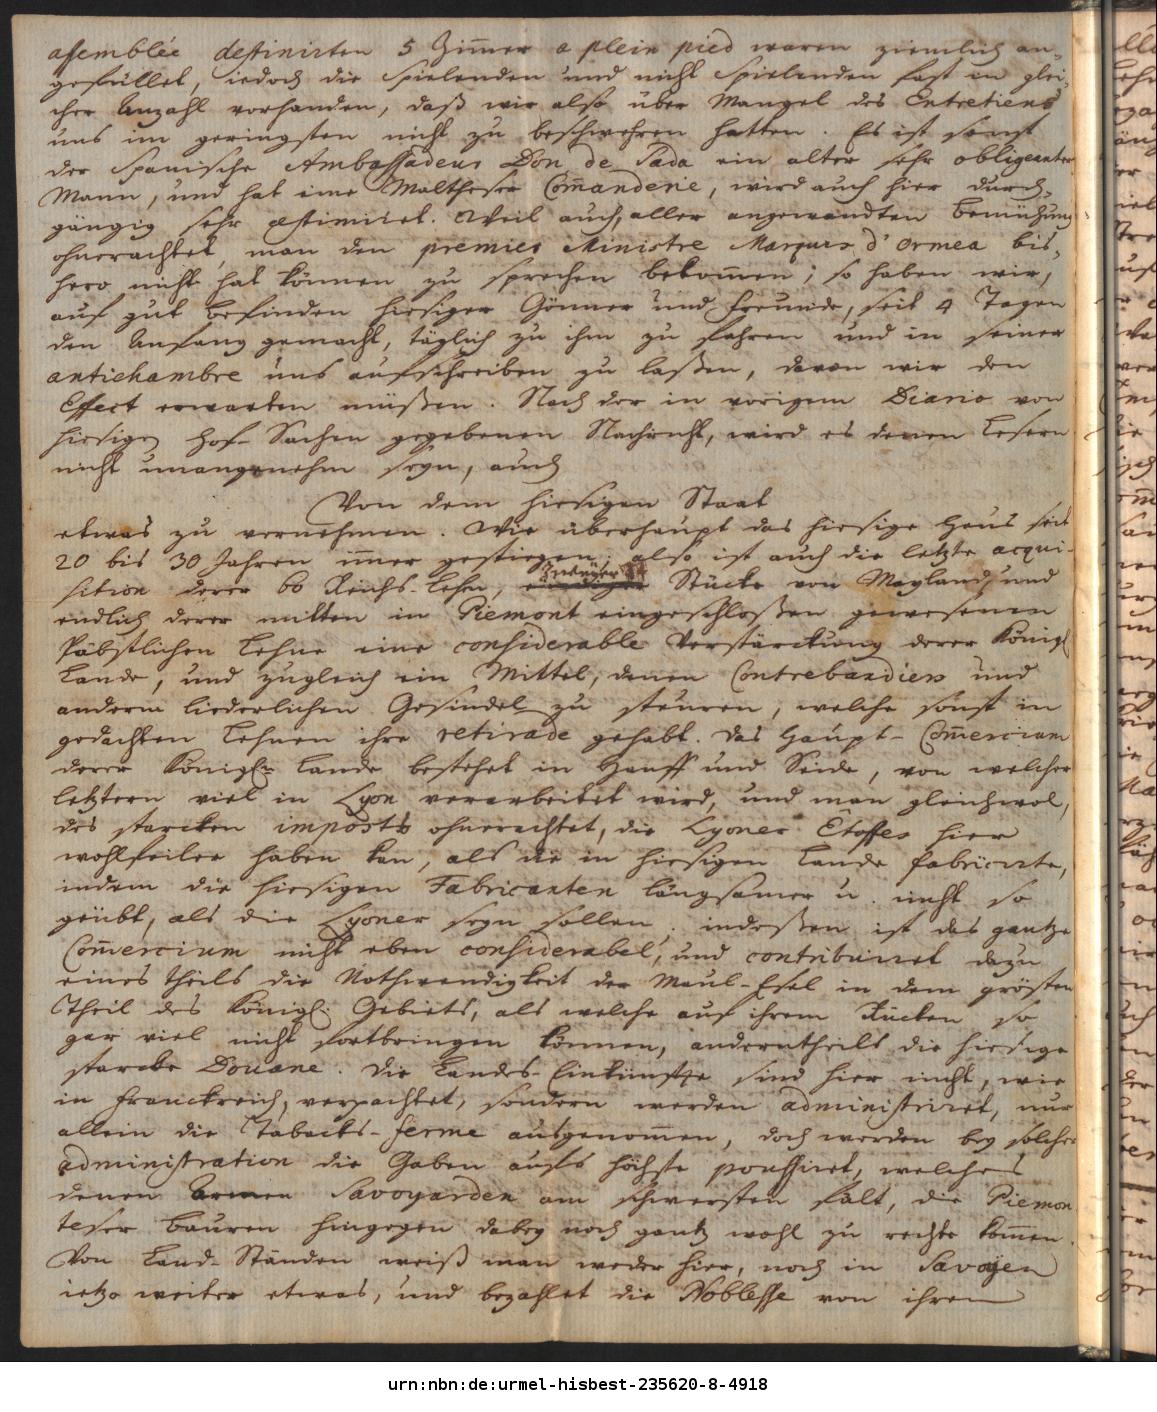 assemblée destinirten 5 Zim̄er a plein pied waren ziemlich an-
gefüllet, iedoch die Spielenden und nicht Spielenden fast in glei-
cher Anzahl vorhanden, daß wir also über Mangel des Entretiens
uns im geringsten nicht zu beschwehren hatten. Es ist sonst
der Spanische Ambassadeur Don de Sada ein alter sehr obligeanter
Mann, und hat eine Maltheser Com̄anderie, wird auch hier durch-
gängig sehr æstimiret. Weil auch, aller angewandten Bemühung
ohnerachtet, man den premier Ministre Marquis d'Ormea bis-
hero nicht hat können zu sprechen bekom̄en; so haben wir,
auf gut befinden hiesiger Gönner und Freunde, seit 4 Tagen
den Anfang gemacht, täglich zu ihm zu fahren und in seiner
antichambre uns aufschreiben zu laßen, davon wir den
Effect erwarten müßen. Nach der in vorigem Diario von
hiesigen Hof-Sachen gegebenen Nachricht, wird es denen Lesern
nicht unangenehm seyn, auch
Von dem hiesigen Staat
etwas zu vernehmen. Wie überhaupt das hiesige Haus seit
20 bis 30 Jahren im̄er gestiegen: also ist auch die letzte acqui-
sition derer 60 Reichs-Lehn, Stücke von Mayland, und
endlich derer mitten in Piemont eingeschloßen gewesenen
Päbstlichen Lehne eine considerable Verstärckung derer Königl.
Lande, und zugleich ein Mittel, denen Contrebandiers und
anderm liederlichen Gesindel zu steuren, welche sonst in
gedachten Lehnen ihre retirade gehabt. Das Haupt-Com̄ercium
derer Königln. Lande bestehet in Hanff und Seide, von welcher
letztern viel in Lyon verarbeitet wird, und man gleichwol,
des starcken imposts ohnerachtet, die Lyoner Etoffes hier
wohlfeiler haben kan, als die in hiesigen Lande fabricirte,
indem die hiesigen Fabricanten langsamer u. nicht so
geübt, als die Lyoner seyn sollen. indeßen ist das gantze
Com̄ercium nicht eben considerabel, und contribuiret dazu
eines theils die Nothwendigkeit der Maul-Esel in dem grösten
Theil des Königl. Gebiets, als welche auf ihrem Rücken so
gar viel nicht fortbringen können, anderntheils die hiesige
starcke Douane. Die Landes-Einkünffte sind hier nicht, wie
in Franckreich, verpachtet, sondern werden administriret, nur
allein die Tabacks-ferme ausgenom̄en, doch werden bey solcher
administration die Gaben aufs höchste poussiret, welches
denen Armen Savoyarden am schwersten fält, die Piemon
teser Bauren hingegen dabey noch gantz wohl zu rechte kom̄en.
Von Land-Ständen weiß man weder hier, noch in Savoyen
ietzo weiter etwas, und bezahlet die Noblesse von ihren
urn:nbn:de:urmel-hisbest-235620-8-4918